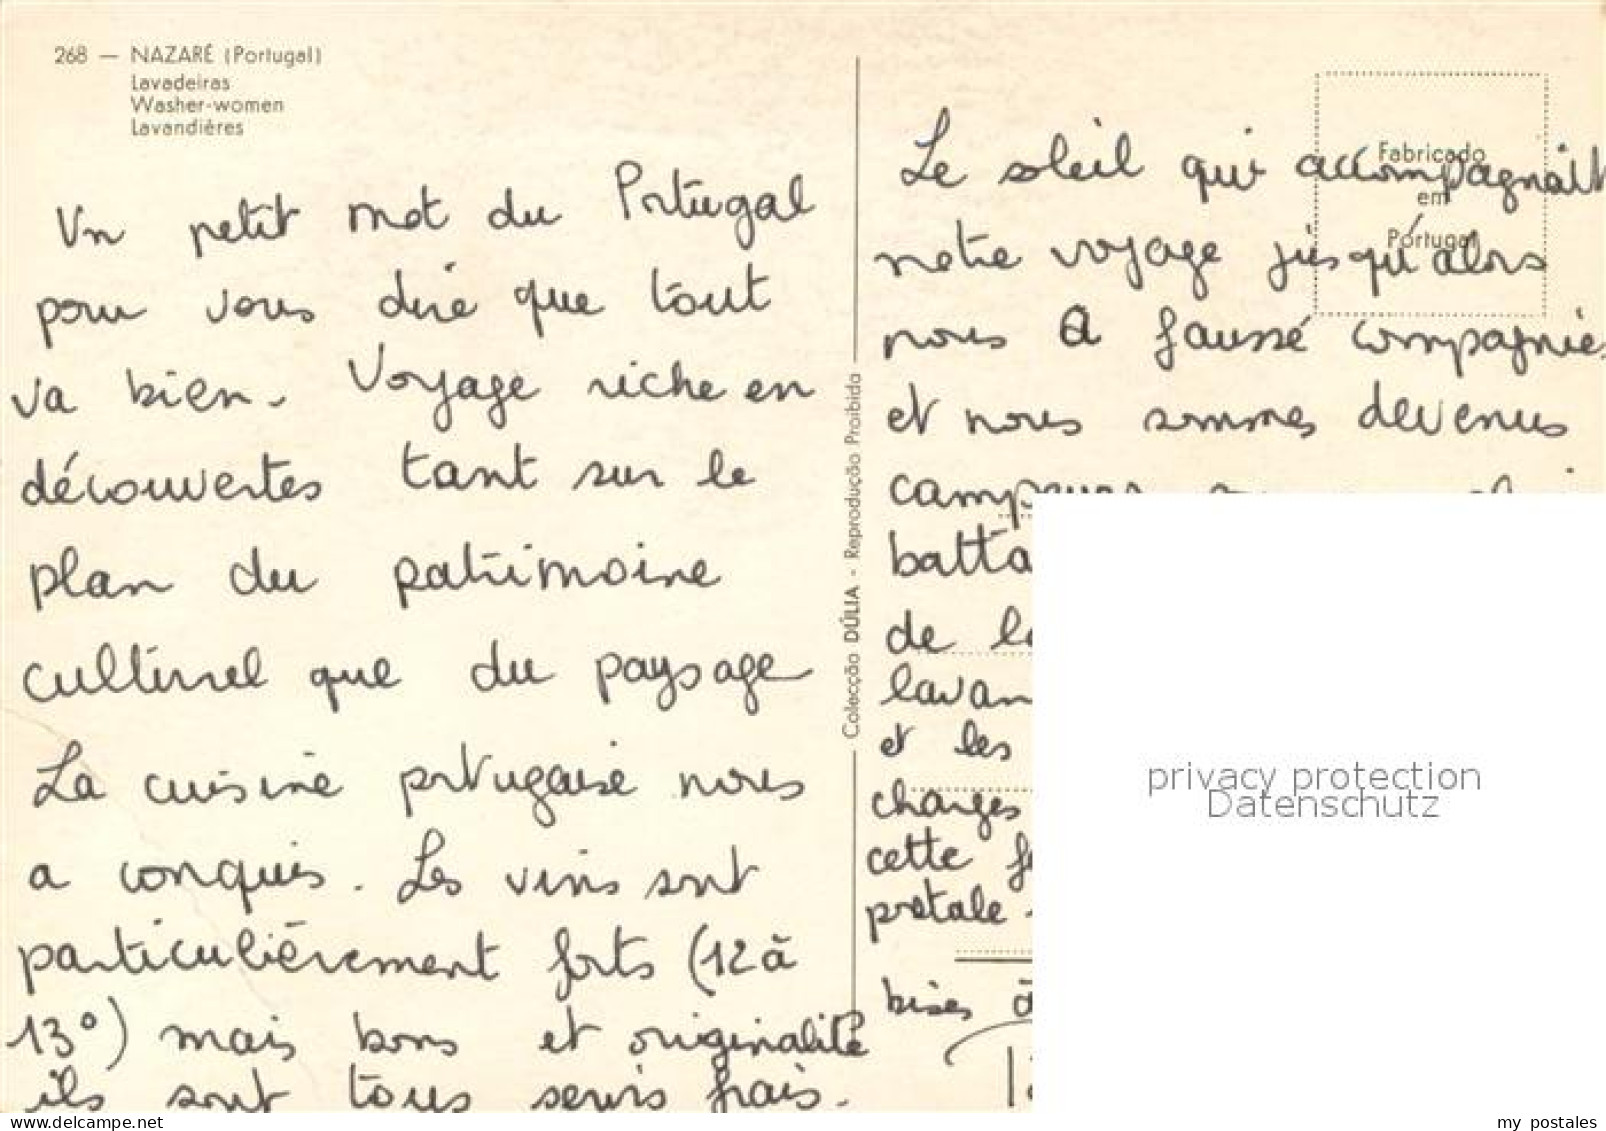 268 — NAZARÉ (Portugal)
Lavadeiras
Washer-women
Lavandiéres
Un petit mot du Portugal
pour vous dire que tout
va bien. Voyage riche en
découvertes tant sur le
plan du patrimoine
culturel que du paysage
La cuisine portugaise nous
a conquis. Les vins sont
particulièrement forts (12 à
13°) mais bons et originalité
ils sont tous servis frais.
Colecção DÚLIA - Reprodução Proibida
Fabricado
em
Portugal
Le soleil qui accompagnait
notre voyage jusqu'alors
nous a faussé compagnie
et nous sommes devenus
campeurs
batta
de la
lavan
et les
charges
cette
postale
bises à
privacy protection
Datenschutz
my postales